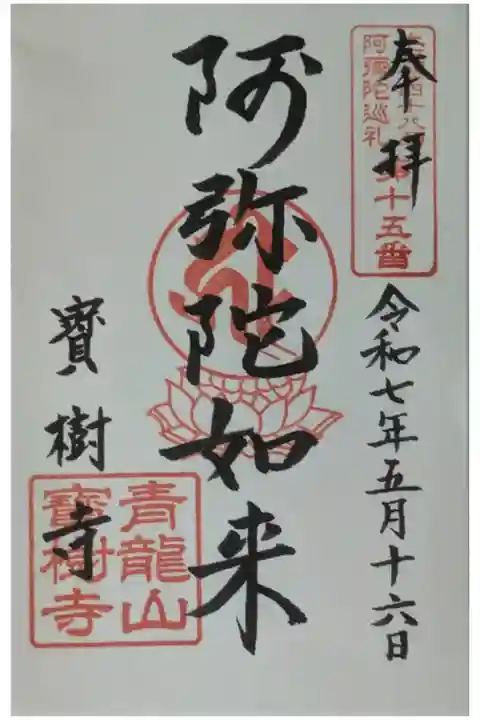 奉拝
阿彌陀巡礼
第十五番
令和七年五月十六日
阿弥陀如来
寶樹寺
青龍山
寶樹寺